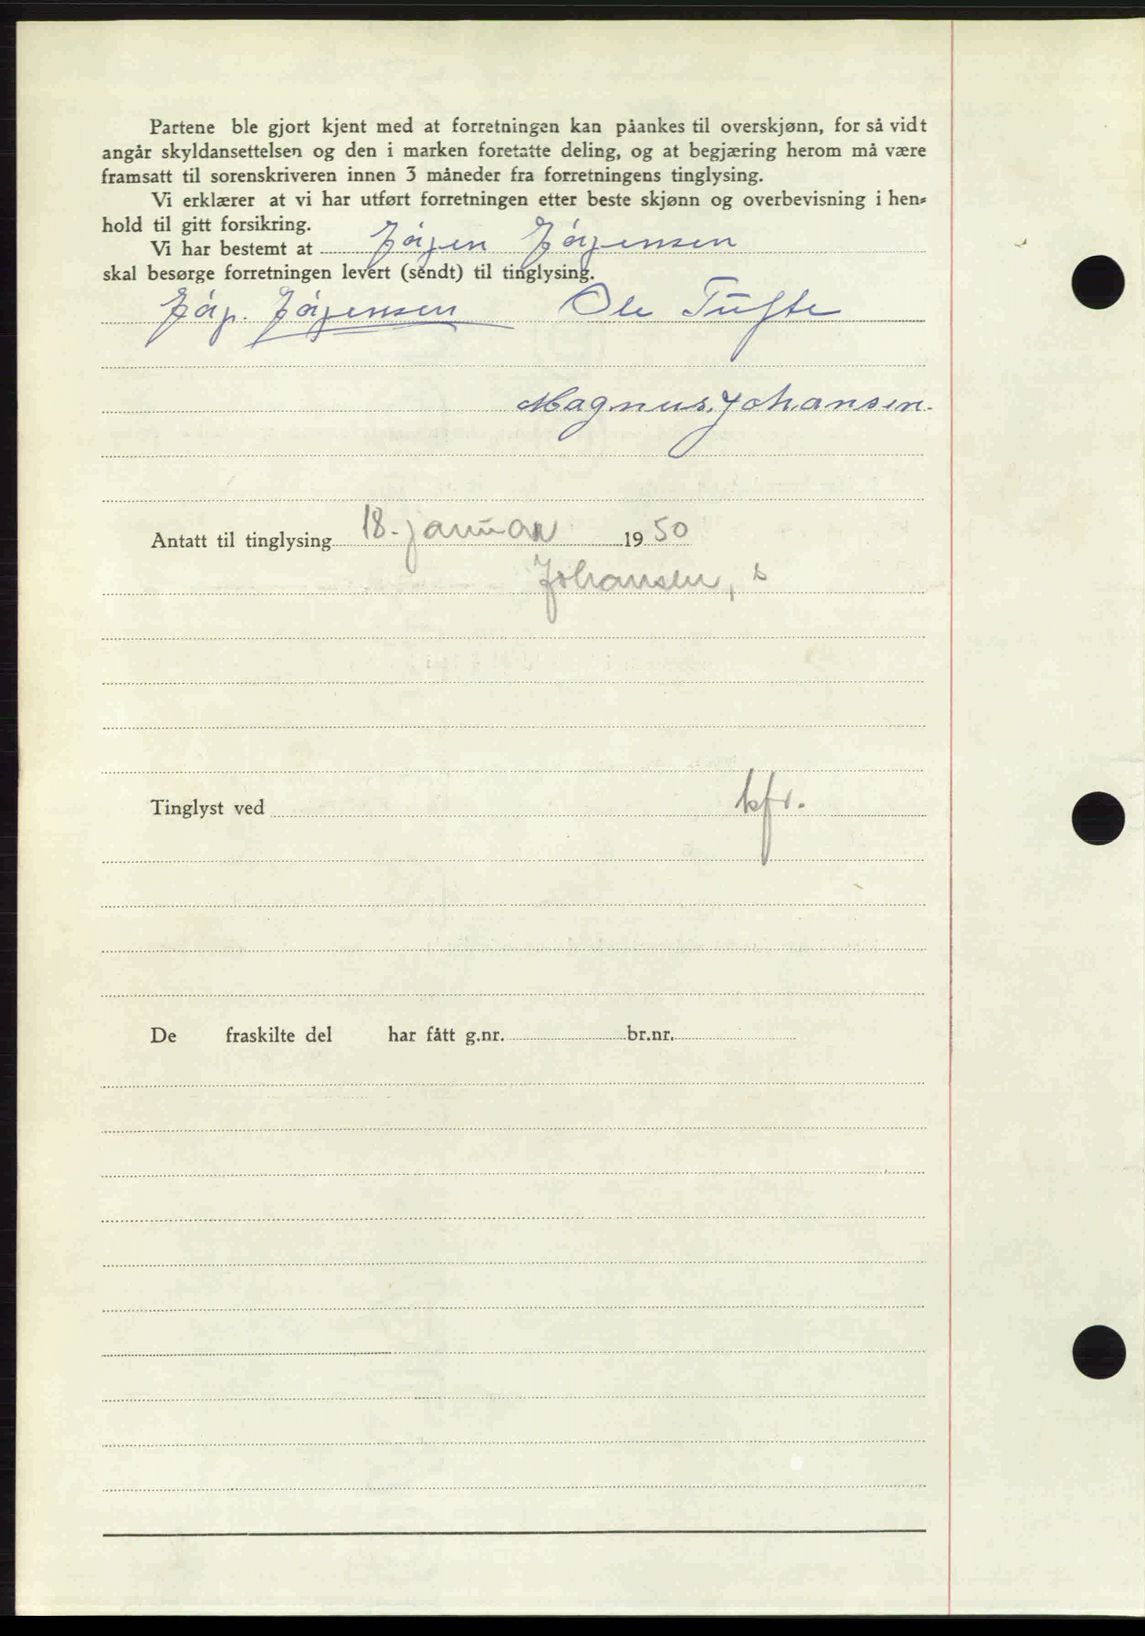 Partene ble gjort kjent med at forretningen kan påankes til overskjønn, for så vidt
angår skyldansettelsen og den i marken foretatte deling, og at begjæring herom må være
framsatt til sorenskriveren innen 3 måneder fra forretningens tinglysing.
Vi erklærer at vi har utført forretningen etter beste skjønn og overbevisning i hen-
hold til gitt forsikring.
Vi har bestemt at Jörgen Jörgensen
skal besørge forretningen levert (sendt) til tinglysing.
Jörg. Jörgensen Ole Tufte
Magnus Johansen.
Antatt til tinglysing 18. januar 1950
Johansen, s
Tinglyst ved kfr.
De fraskilte del har fått g.nr. br.nr.